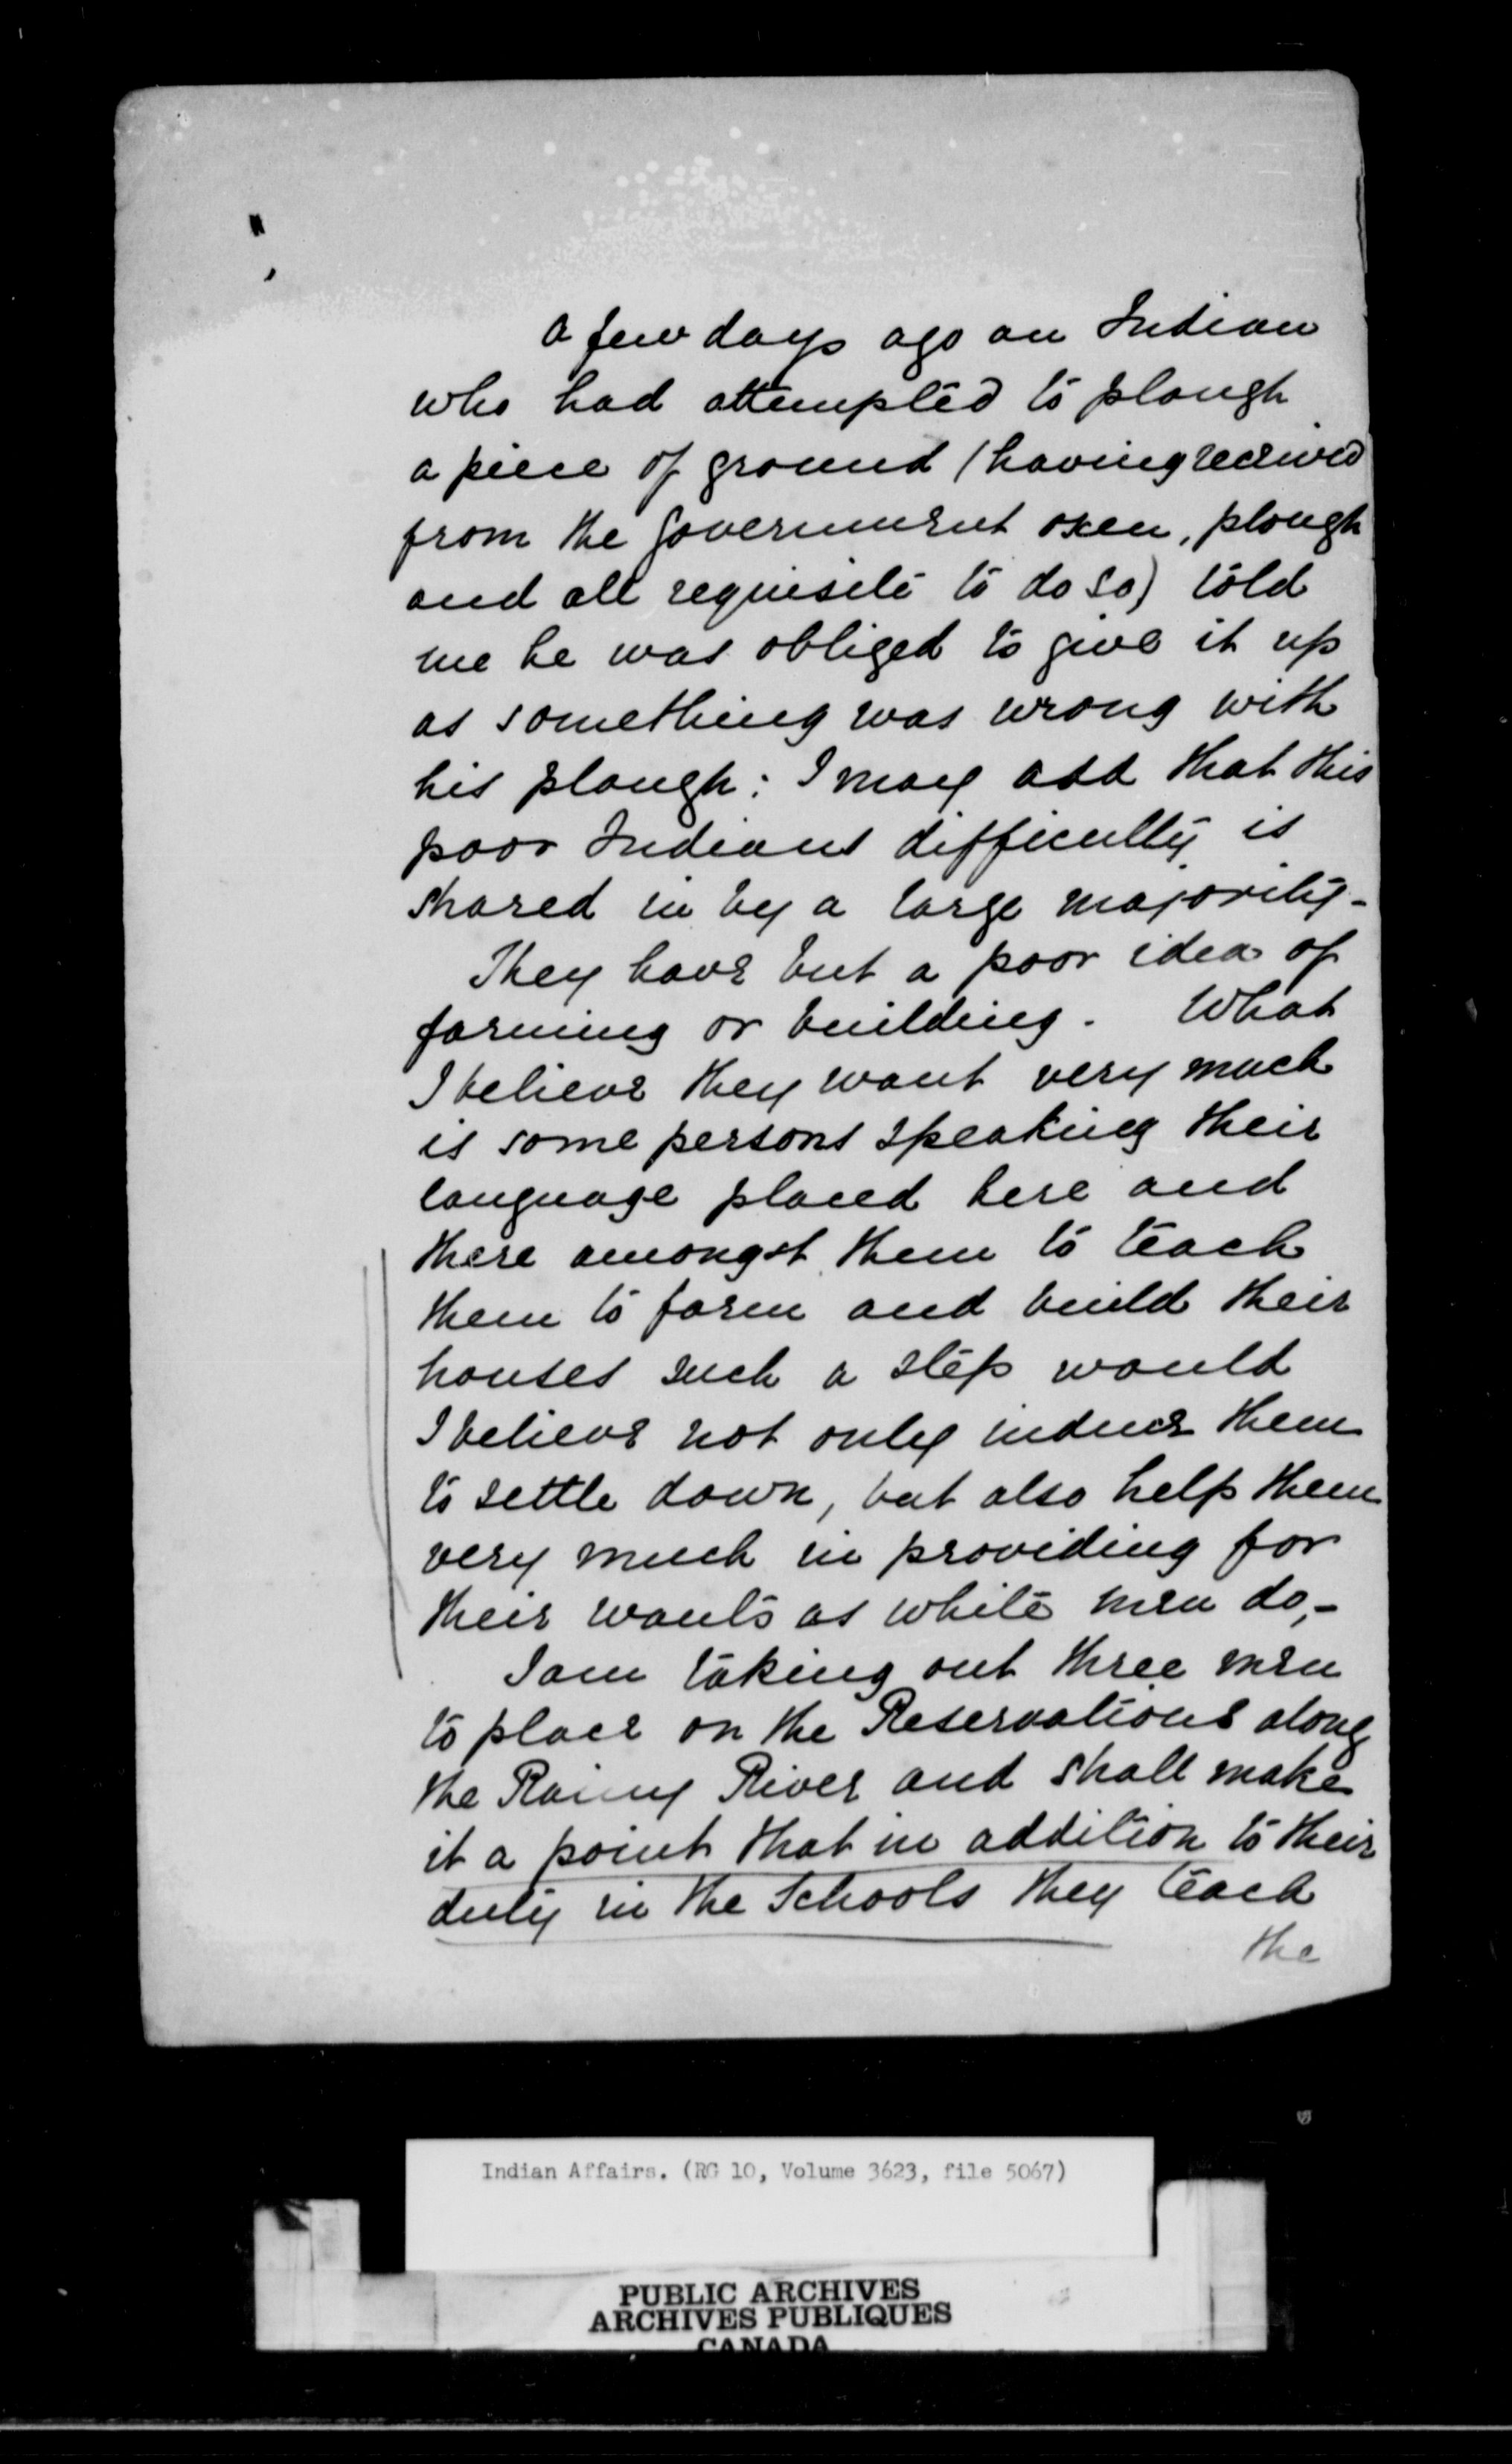 A few days ago an Indian
who had attempted to plough
a piece of ground (having received
from the Government oxen, plough
and all requisite to do so) told
me he was obliged to give it up
as something was wrong with
his plough: I may add that this
poor Indians difficulty is
shared in by a large majority-
They have but a poor idea of
farming or building. What
I believe they want very much
is some persons speaking their
language placed here and
there amongst them to teach
them to farm and build their
houses such a step would
I believe not only induce them
to settle down, but also help them
very much in providing for
their wants as white men do,-
I am taking out three men
to place on the Reservations along
the Rainy River and shall make
it a point that in addition to their
duty in the Schools they teach
the
Indian Affairs. (RG 10, Volume 3623, file 5067)
PUBLIC ARCHIVES
ARCHIVES PUBLIQUES
CANADA